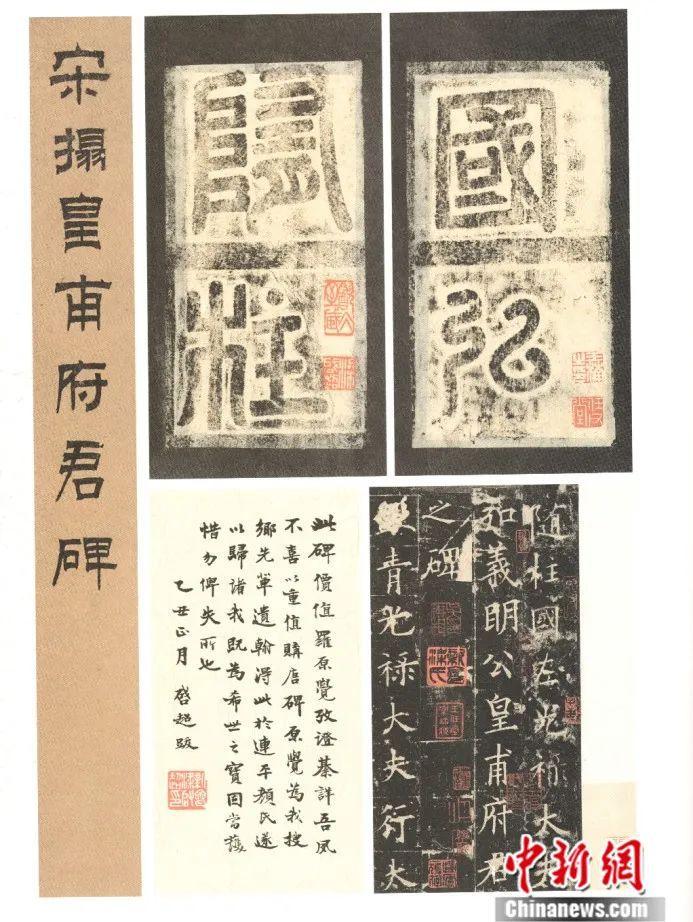 宋搨皇甫府君碑
隨柱
國弘
此碑價值羅原覺攷證綦詳吾夙
不喜以重值購唐碑原覺為我搜
鄉先輩遺翰淂此於連平顏氏遂
以歸諸我既為希世之寶固當護
惜勿俾失所也
乙丑正月 啓超跋
隨柱國左光祿大夫
弘義明公皇甫府君
之碑
青光祿大夫行太
中新网
Chinanews.com